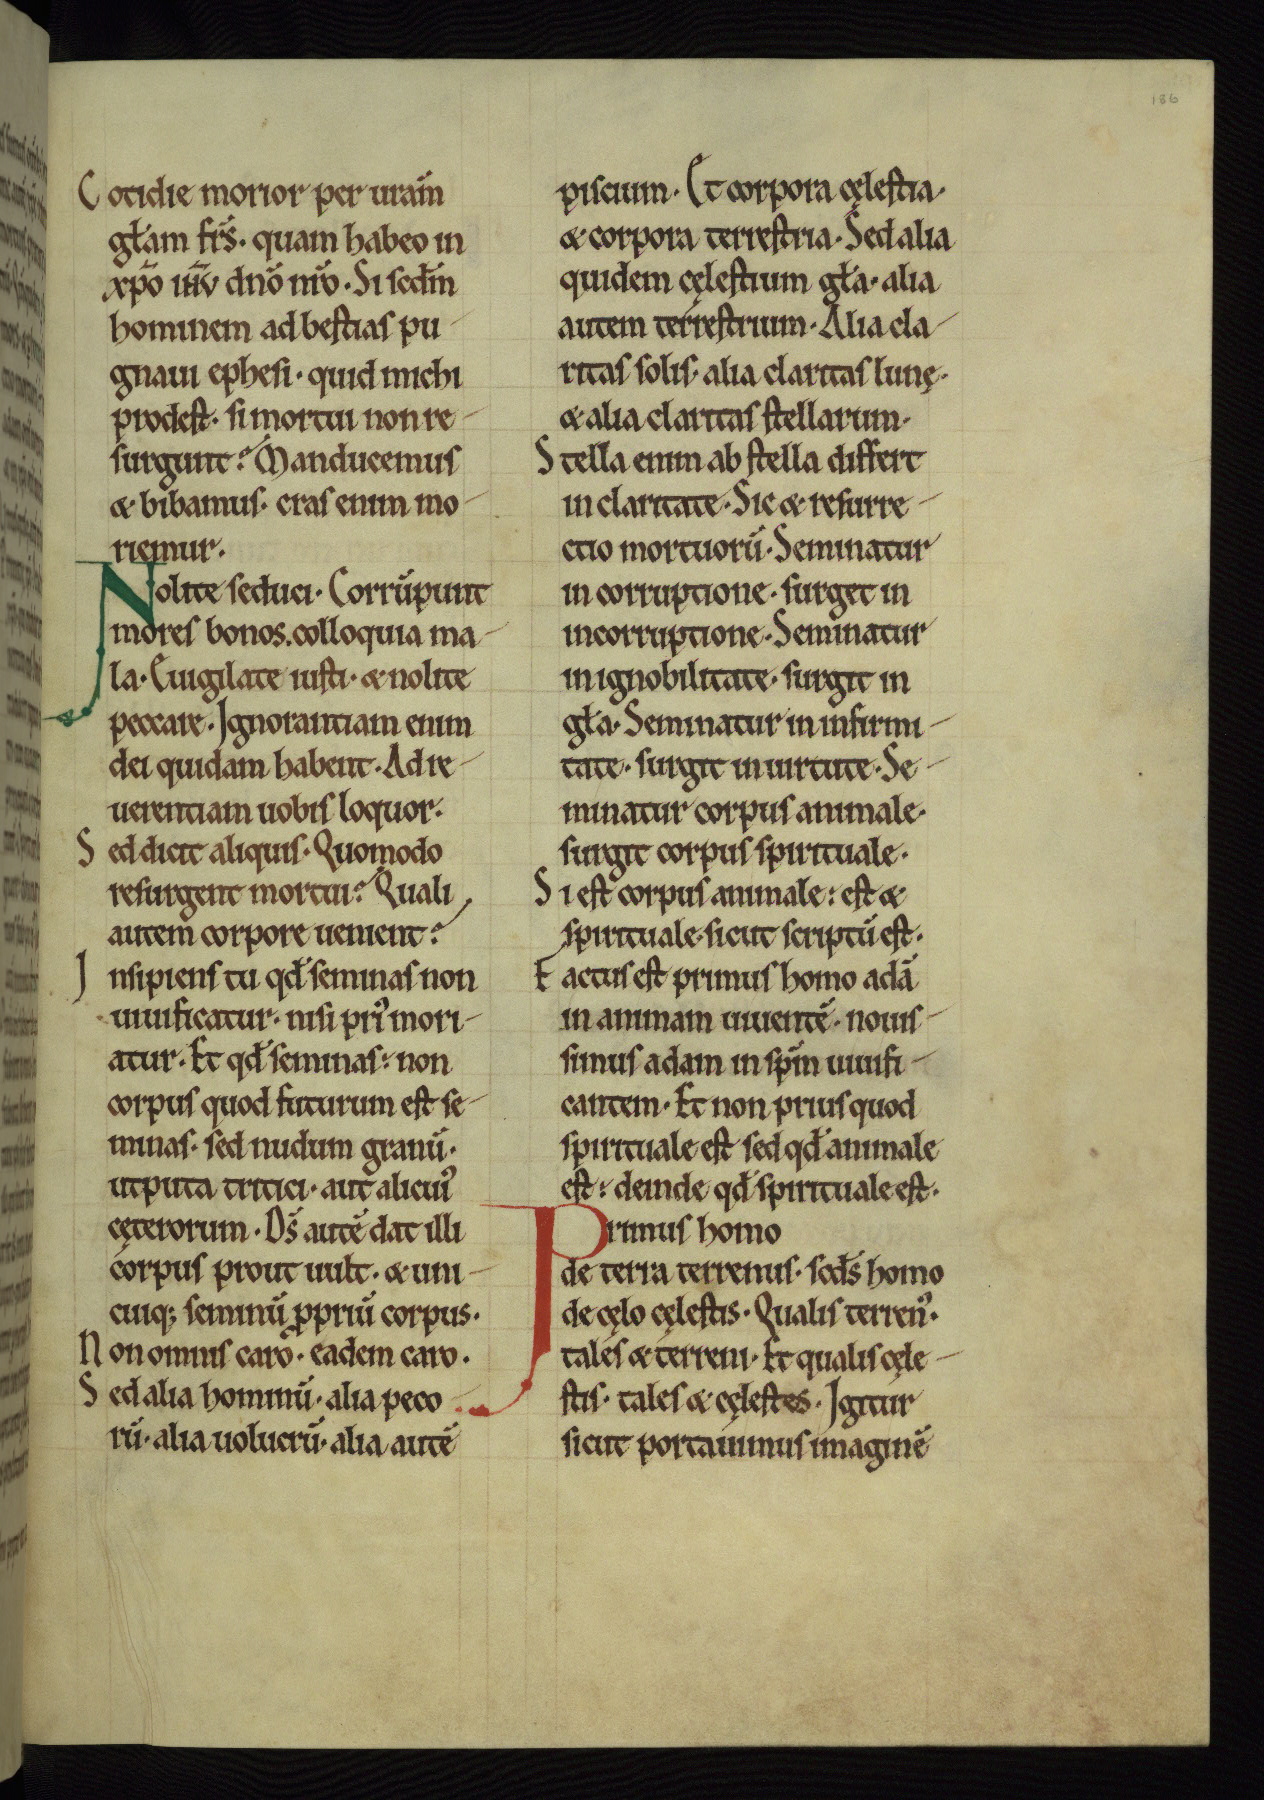 186
Cotidie morior per uram̄
głam frs̄. quam habeo in
xp̄o ih̄u dnō nr̄o. Si scdm̄
hominem ad bestias pu
gnaui ephesi. quid michi
prodest. si mortui non re
surgunt? Manducemus
& bibamus. cras enim mo
riemur.
Nolite seduci. Corrūpunt
mores bonos. colloquia ma
la. Euigilate iusti. & nolite
peccare. Ignorantiam enim
dei quidam habent. Ad re
uerentiam uobis loquor.
Sed dicit aliquis. Quomodo
resurgent mortui? Quali
autem corpore uenient?
Insipiens tu qd̄ seminas non
uiuificatur. nisi priꝰ mori
atur. Et qd̄ seminas: non
corpus quod futurum est se
minas. sed nudum granū.
utputa tritici. aut alicuiꝰ
cęterorum. Ds̄ autē dat illi
corpus prout uult. & uni
cuiq; seminū ꝓpriū corpus.
Non omnis caro. eadem caro.
Sed alia hominū. alia peco
rū. alia uolucrū. alia autē
piscium. Et corpora cęlestia.
& corpora terrestria. Sed alia
quidem cęlestium gła. alia
autem terrestrium. Alia cla
ritas solis. alia claritas lunę.
& alia claritas stellarum.
Stella enim ab stella differt
in claritate. Sic & resurre
ctio mortuorū. Seminatur
in corruptione. surget in
incorruptione. Seminatur
in ignobilitate. surgit in
gła. Seminatur in infirmi
tate. surgit in uirtute. Se
minatur corpus animale.
surgit corpus spirituale.
Si est corpus animale: est &
spirituale. sicut scriptū est.
Factus est primus homo adā
in animam uiuentē. nouis
simus adam in spm̄ uiuifi
cantem. Et non prius quod
spirituale est sed qd̄ animale
est: deinde qd̄ spirituale est.
Primus homo
de terra terrenus. scds̄ homo
de cęlo cęlestis. Qualis terrenꝰ.
tales & terreni. Et qualis cęle
stis. tales & cęlestes. Igitur
sicut portauimus imaginē